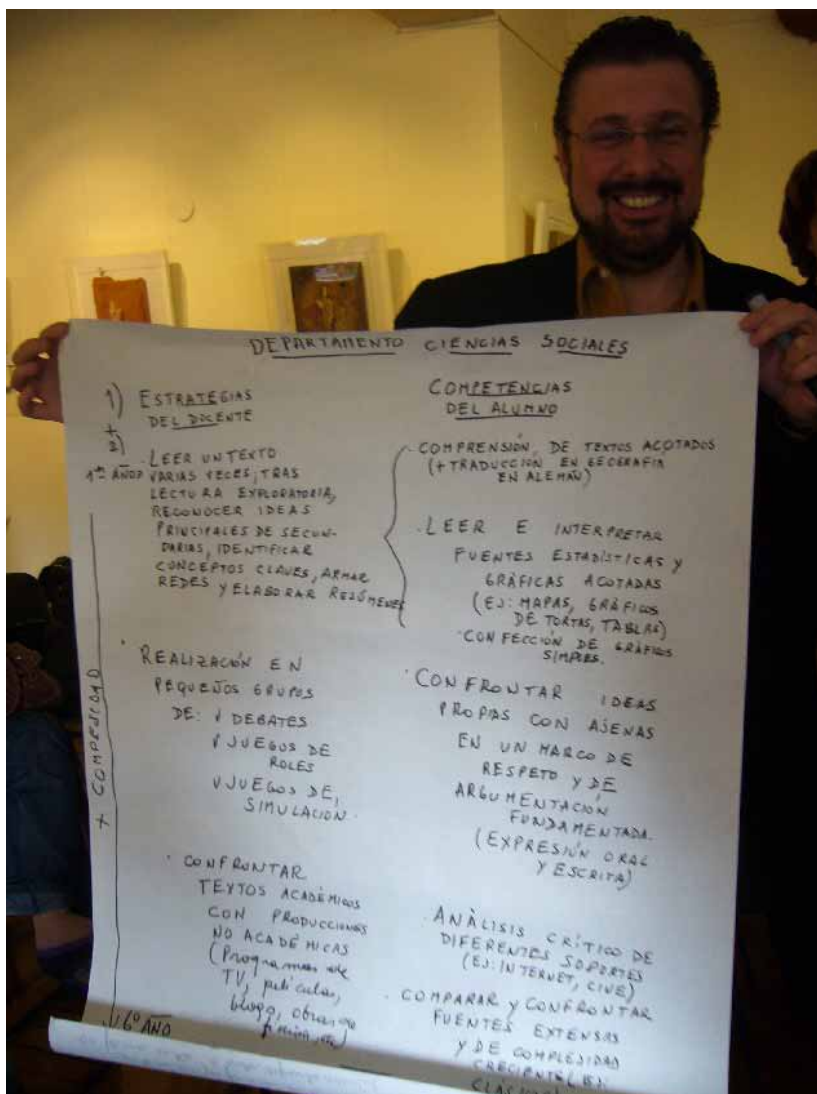 DEPARTAMENTO CIENCIAS SOCIALES
1) ESTRATEGIAS
DEL DOCENTE
+
2)
. LEER UN TEXTO
1er AÑO VARIAS VECES, TRAS
LECTURA EXPLORATORIA,
RECONOCER IDEAS
PRINCIPALES DE SECUN-
DARIAS, IDENTIFICAR
CONCEPTOS CLAVES, ARMAR
REDES Y ELABORAR RESÚMENES
. REALIZACIÓN EN
PEQUEÑOS GRUPOS
DE: √ DEBATES
√ JUEGOS DE
ROLES
√ JUEGOS DE
SIMULACION.
. CONFRONTAR
TEXTOS ACADÉMICOS
CON PRODUCCIONES
NO ACADÉMICAS
(Programas de
TV, películas,
blogs, obras de
+ COMPLEJIDAD
6º AÑO
COMPETENCIAS
DEL ALUMNO
. COMPRENSIÓN, DE TEXTOS ACOTADOS
(+ TRADUCCIÓN EN GEOGRAFIA
EN ALEMÁN)
. LEER E INTERPRETAR
FUENTES ESTADÍSTICAS Y
GRÁFICAS ACOTADAS
(EJ: MAPAS, GRÁFICOS
DE TORTAS, TABLAS)
. CONFECCIÓN DE GRÁFICOS
SIMPLES.
. CONFRONTAR IDEAS
PROPIAS CON AJENAS
EN UN MARCO DE
RESPETO Y DE
ARGUMENTACIÓN
FUNDAMENTADA.
(EXPRESIÓN ORAL
Y ESCRITA)
. ANÀLISIS CRÍTICO DE
DIFERENTES SOPORTES
(EJ: INTERNET, CINE)
. COMPARAR Y CONFRONTAR
FUENTES EXTENSAS
Y DE COMPLEJIDAD
CRECIENTE (EJ: